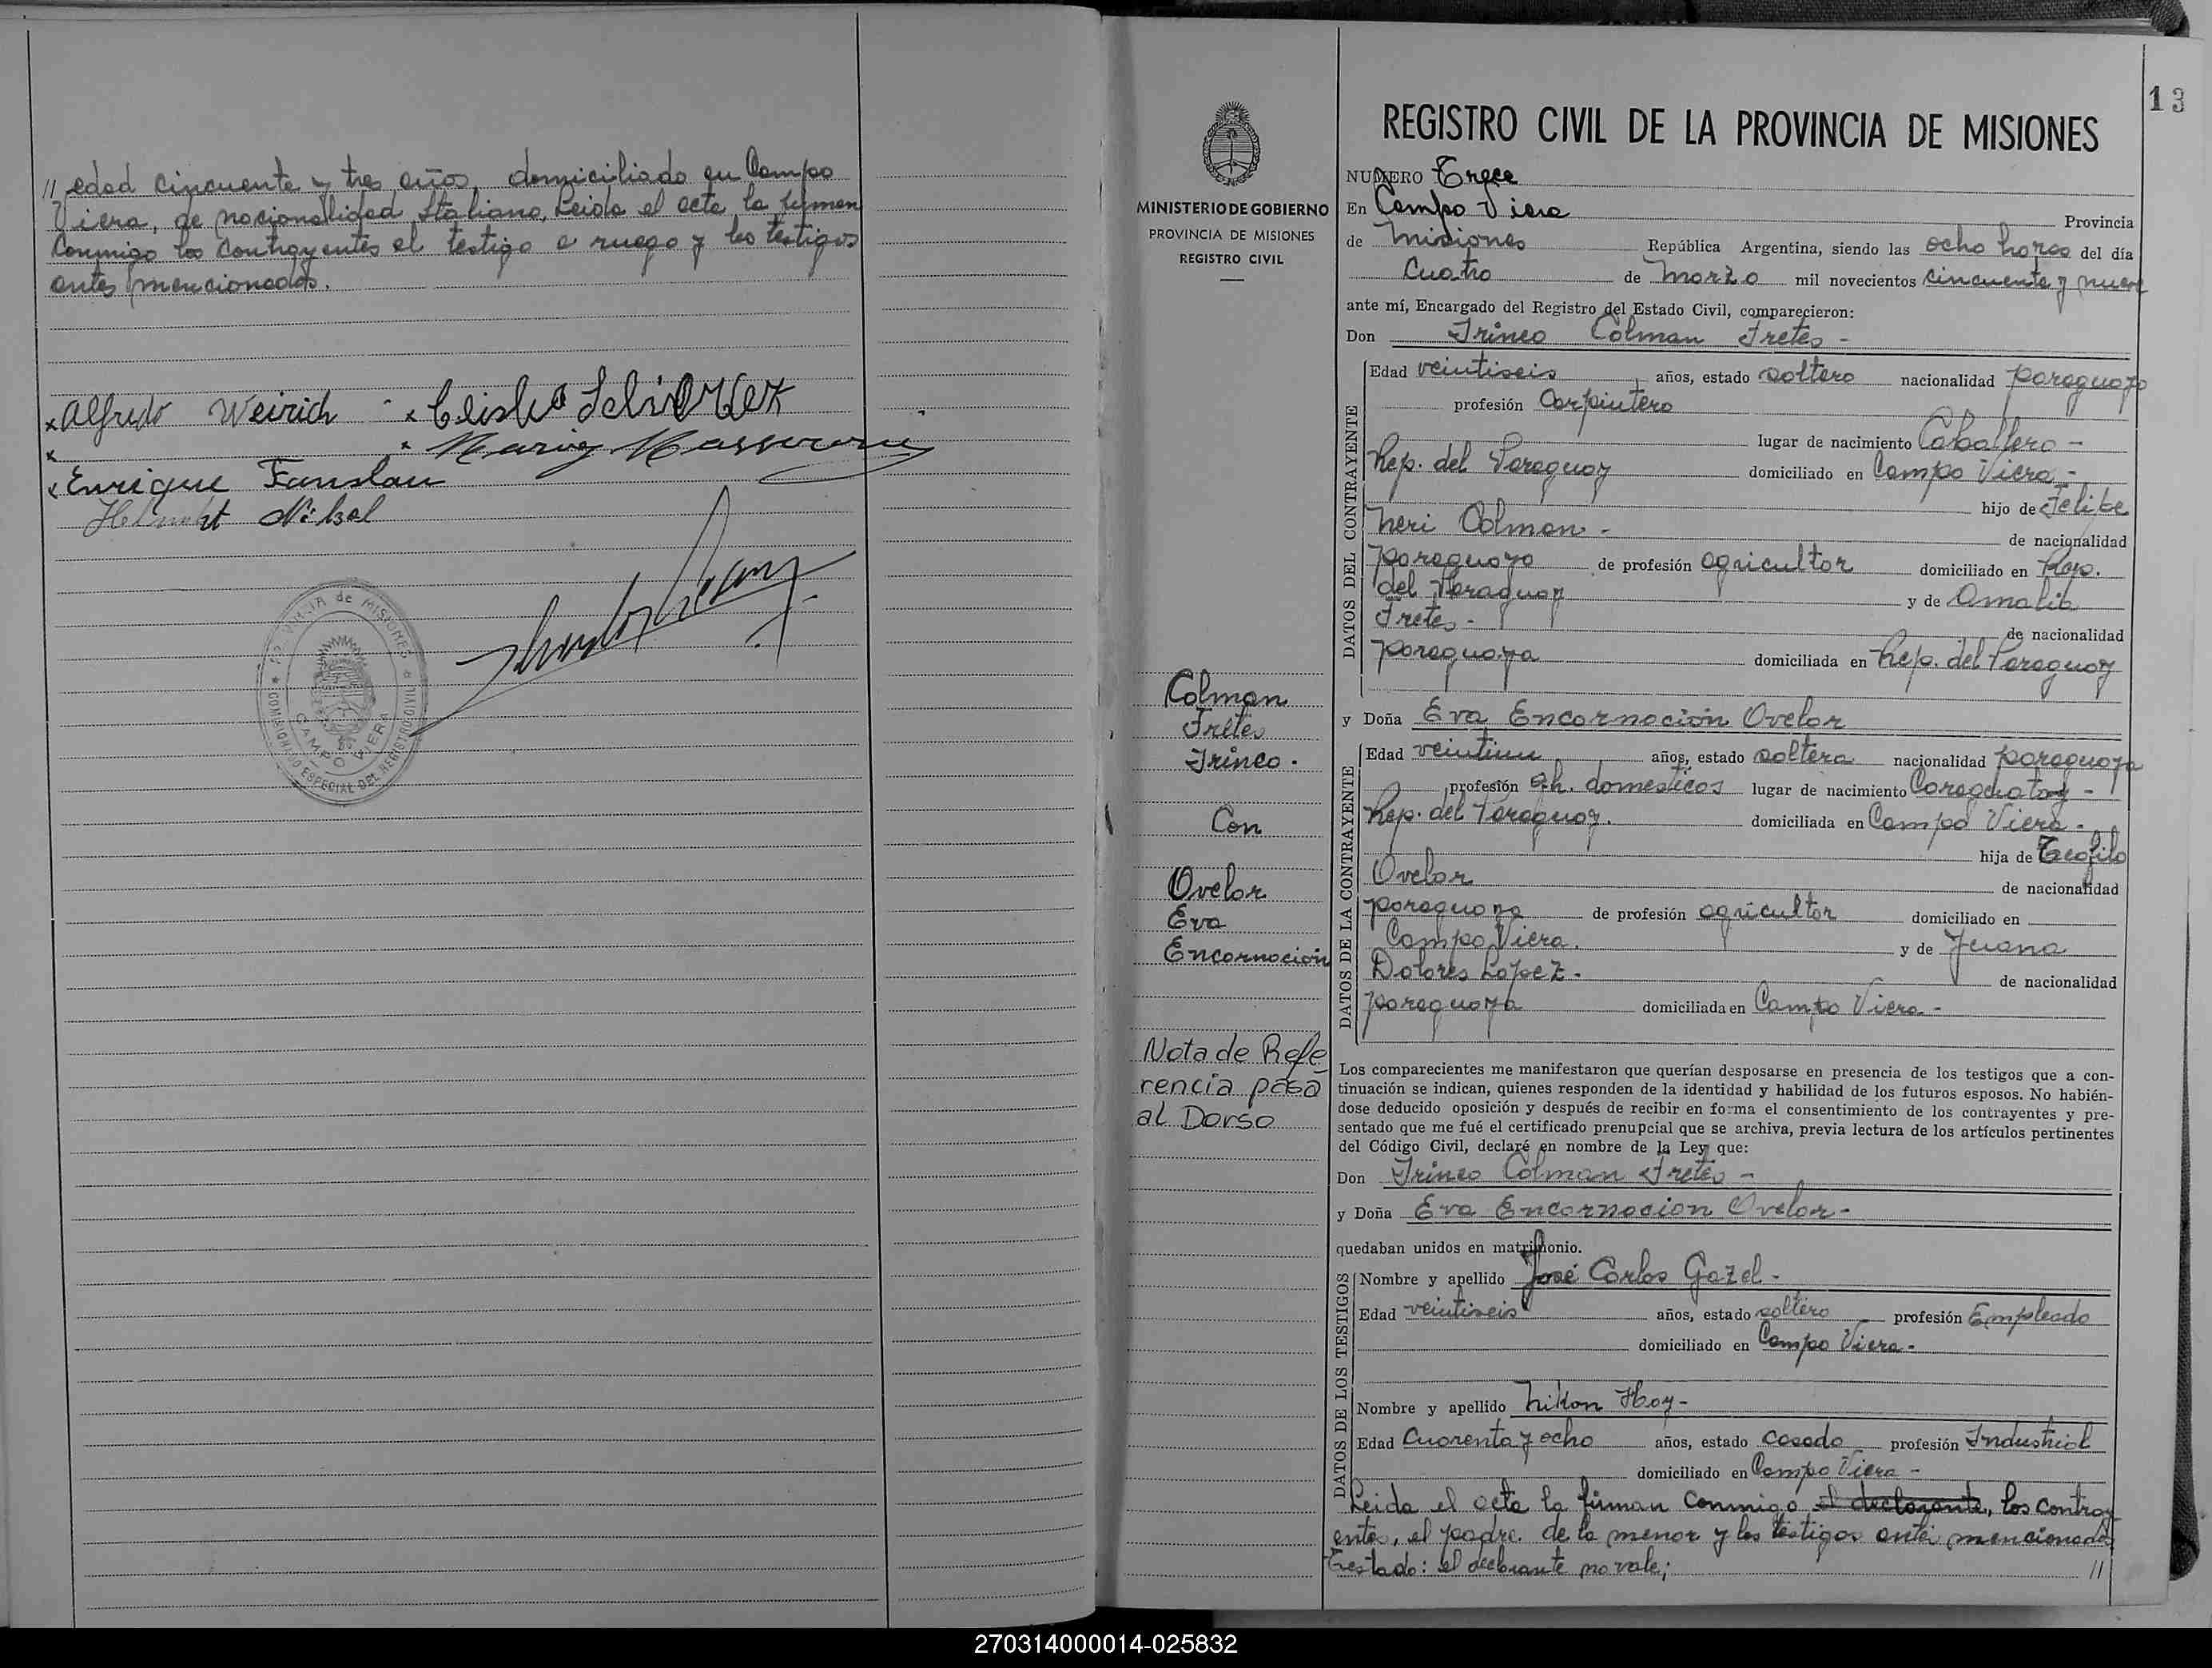 // edad cincuenta y tres años, domiciliado en Campo
Viera, de nacionalidad Italiano, Leida el acta la firman
conmigo los contrayentes el testigo a ruego y los testigos
antes mencionados.
x Alfredo Weirich - x
x
x Enrique Fanslau
Nikel
PROVINCIA de MISIONES
COMISIONADO ESPECIAL DEL REGISTRO CIVIL
CAMPO VIERA
MINISTERIO DE GOBIERNO
PROVINCIA DE MISIONES
REGISTRO CIVIL
Colman
Fretes
Irineo.
Con
Ovelar
Eva
Encarnación
Nota de Refe
rencia pasa
al Dorso
13
REGISTRO CIVIL DE LA PROVINCIA DE MISIONES
NUMERO Trece
En Campo Viera Provincia
de Misiones República Argentina, siendo las ocho horas del día
Cuatro de Marzo mil novecientos cincuenta y nueve
ante mí, Encargado del Registro del Estado Civil, comparecieron:
Don Irineo Colman Fretes -
DATOS DEL CONTRAYENTE
Edad veintiseis años, estado soltero nacionalidad paraguayo
profesión Carpintero
lugar de nacimiento Caballero -
Rep. del Paraguay domiciliado en Campo Viera -
hijo de Felipe
Neri Colman - de nacionalidad
paraguayo de profesión agricultor domiciliado en Rep.
del Paraguay y de Amalia
Fretes - de nacionalidad
paraguaya domiciliada en Rep. del Paraguay
y Doña Eva Encarnación Ovelar
DATOS DE LA CONTRAYENTE
Edad veintiun años, estado soltera nacionalidad paraguaya
profesión q.h. domesticos lugar de nacimiento Caraguatay -
Rep. del Paraguay. domiciliada en Campo Viera -
hija de Teofilo
Ovelar de nacionalidad
paraguaya de profesión agricultor domiciliado en
Campo Viera. y de Juana
Dolores Lopez - de nacionalidad
paraguaya domiciliada en Campo Viera -
Los comparecientes me manifestaron que querían desposarse en presencia de los testigos que a con-
tinuación se indican, quienes responden de la identidad y habilidad de los futuros esposos. No habién-
dose deducido oposición y después de recibir en forma el consentimiento de los contrayentes y pre-
sentado que me fué el certificado prenupcial que se archiva, previa lectura de los artículos pertinentes
del Código Civil, declaré en nombre de la Ley que:
Don Irineo Colman Fretes -
y Doña Eva Encarnacion Ovelar -
quedaban unidos en matrimonio.
DATOS DE LOS TESTIGOS
Nombre y apellido José Carlos Gazel -
Edad veintiseis años, estado soltero profesión Empleado
domiciliado en Campo Viera -
Nombre y apellido Nikon Hoy -
Edad Cuarenta y ocho años, estado casado profesión Industrial
domiciliado en Campo Viera -
Leida el acta la firman conmigo el declarante, los contray
entes, el padre de la menor y los testigos antes mencionados
Testado: el declarante no vale; //
270314000014-025832